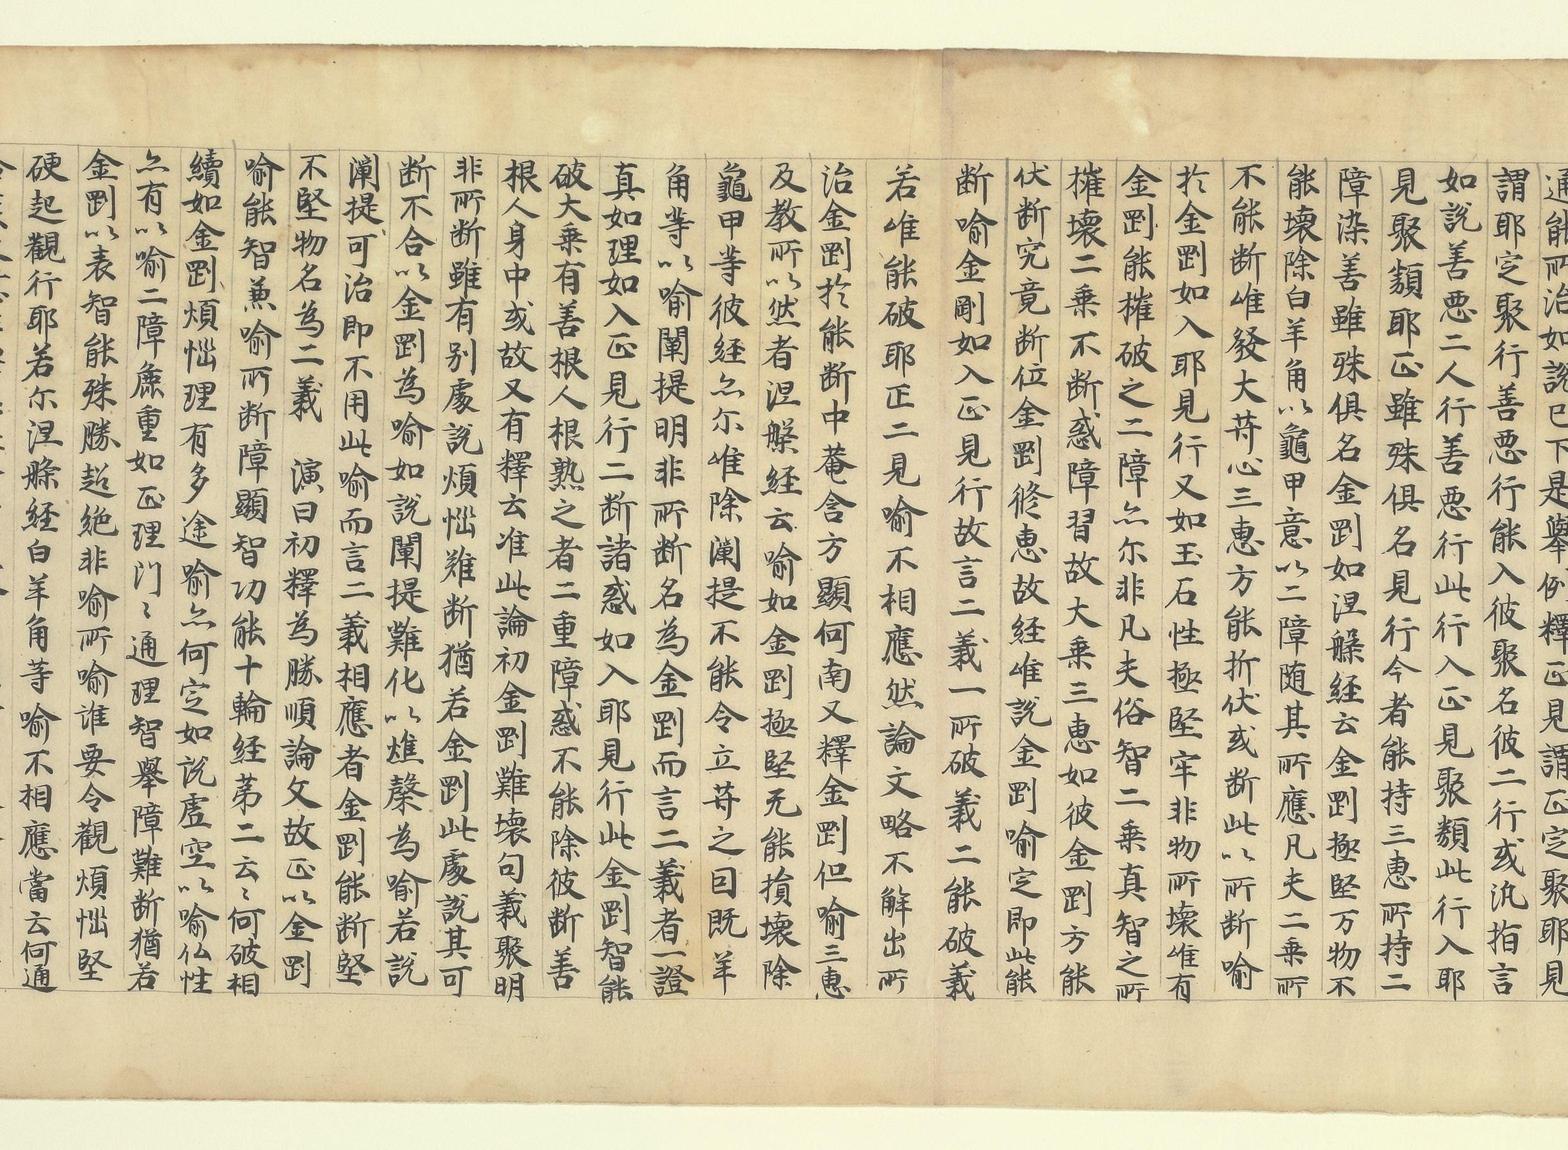 通能所治如說已下是舉例釋正見謂正定聚耶見
謂耶定聚行善惡行能入彼聚名彼二行或汎指言
如說善惡二人行善惡行此行入正見聚類此行入耶
見聚類耶正雖殊俱名見行今者能持三惠所持二
障染善雖殊俱名金剛如涅槃經云金剛極堅万物不
能壞除白羊角以龜甲意以二障随其所應凡夫二乘所
不能断唯發大菩心三惠方能折伏或断此以所断喻
於金剛如入耶見行又如玉石性極堅牢非物所壞唯有
金剛能摧破之二障亦尔非凡夫俗智二乘真智之所
摧壞二乘不断惑障習故大乘三惠如彼金剛方能
伏断究竟断位金剛修惠故経唯說金剛喻定即此能
断喻金剛如入正見行故言二義一所破義二能破義
若唯能破耶正二見喻不相應然論文略不解出所
治金剛於能断中菴含方顯何南又釋金剛但喻三惠
及教所以然者涅槃経云喻如金剛極堅无能損壞除
龜甲等彼経亦尔唯除闡提不能令立菩之因既羊
角等以喻闡提明非所断名為金剛而言二義者一證
真如理如入正見行二断諸惑如入耶見行此金剛智能
破大乘有善根人根熟之者二重障惑不能除彼断善
根人身中或故又有釋云准此論初金剛難壞句義聚明
非所断雖有别處說煩惱難断猶若金剛此處說其可
断不合以金剛為喻如說闡提難化以燋糵為喻若說
闡提可治即不用此喻而言二義相應者金剛能断堅
不堅物名為二義　演曰初釋為勝順論文故正以金剛
喻能智兼喻所断障顯智功能十輪経苐二云々何破相
續如金剛煩惱理有多途喻亦何定如說虛空以喻仏性
亦有以喻二障麁重如正理門々通理智舉障難断猶若
金剛以表智能殊勝超絶非喻所喻誰要令觀煩惱堅
硬起觀行耶若尔涅槃経白羊角等喻不相應當云何通